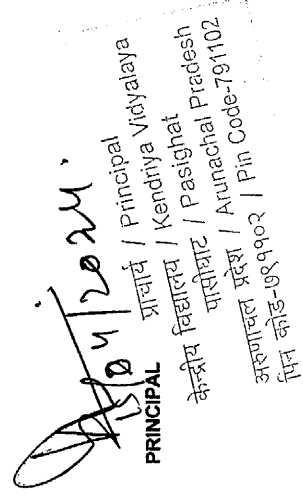 04/2024.
PRINCIPAL
प्राचार्य / Principal
केन्द्रीय विद्यालय / Kendriya Vidyalaya
पासीघाट / Pasighat
अरुणाचल प्रदेश / Arunachal Pradesh
पिन कोड-७९११०२ / Pin Code-791102